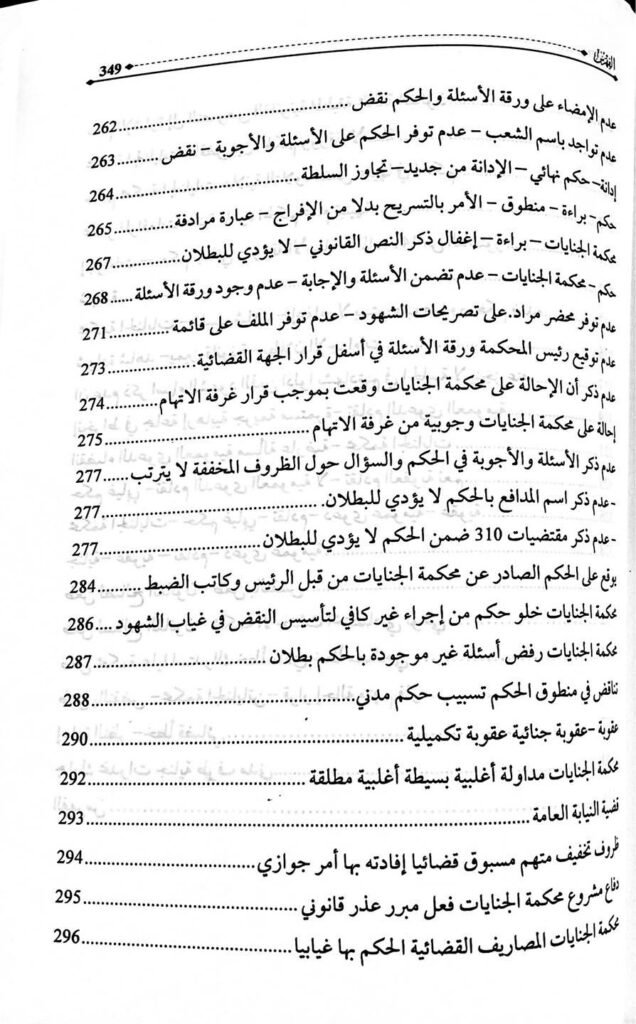 الفهرس
349
عدم الإمضاء على ورقة الأسئلة والحكم نقض ........ 262
عدم تواجد باسم الشعب – عدم توفر الحكم على الأسئلة والأجوبة – نقض ...... 263
إدانة – حكم نهائي – الإدانة من جديد – تجاوز السلطة ........ 264
حكم – براءة – منطوق – الأمر بالتسريح بدلا من الإفراج – عبارة مرادفة ........ 265
محكمة الجنايات – براءة – إغفال ذكر النص القانوني – لا يؤدي للبطلان ........ 267
حكم – محكمة الجنايات – عدم تضمن الأسئلة والإجابة – عدم وجود ورقة الأسئلة ...... 268
عدم توفر محضر مراد.على تصريحات الشهود – عدم توفر الملف على قائمة ........ 271
عدم توقيع رئيس المحكمة ورقة الأسئلة في أسفل قرار الجهة القضائية ........ 273
عدم ذكر أن الإحالة على محكمة الجنايات وقعت بموجب قرار غرفة الاتهام ........ 274
إحالة على محكمة الجنايات وجوبية من غرفة الاتهام ........ 275
عدم ذكر الأسئلة والأجوبة في الحكم والسؤال حول الظروف المخففة لا يترتب ...... 277
-عدم ذكر اسم المدافع بالحكم لا يؤدي للبطلان ........ 277
-عدم ذكر مقتضيات 310 ضمن الحكم لا يؤدي للبطلان ........ 277
يوقع على الحكم الصادر عن محكمة الجنايات من قبل الرئيس وكاتب الضبط ........ 284
محكمة الجنايات خلو حكم من إجراء غير كافي لتأسيس النقض في غياب الشهود ... 286
محكمة الجنايات رفض أسئلة غير موجودة بالحكم بطلان ........ 287
تناقض في منطوق الحكم تسبيب حكم مدني ........ 288
عقوبة -عقوبة جنائية عقوبة تكميلية ........ 290
محكمة الجنايات مداولة أغلبية بسيطة أغلبية مطلقة ........ 292
قضية النيابة العامة ........ 293
ظروف تخفيف متهم مسبوق قضائيا إفادته بها أمر جوازي ........ 294
دفاع مشروع محكمة الجنايات فعل مبرر عذر قانوني ........ 295
محكمة الجنايات المصاريف القضائية الحكم بها غيابيا ........ 296